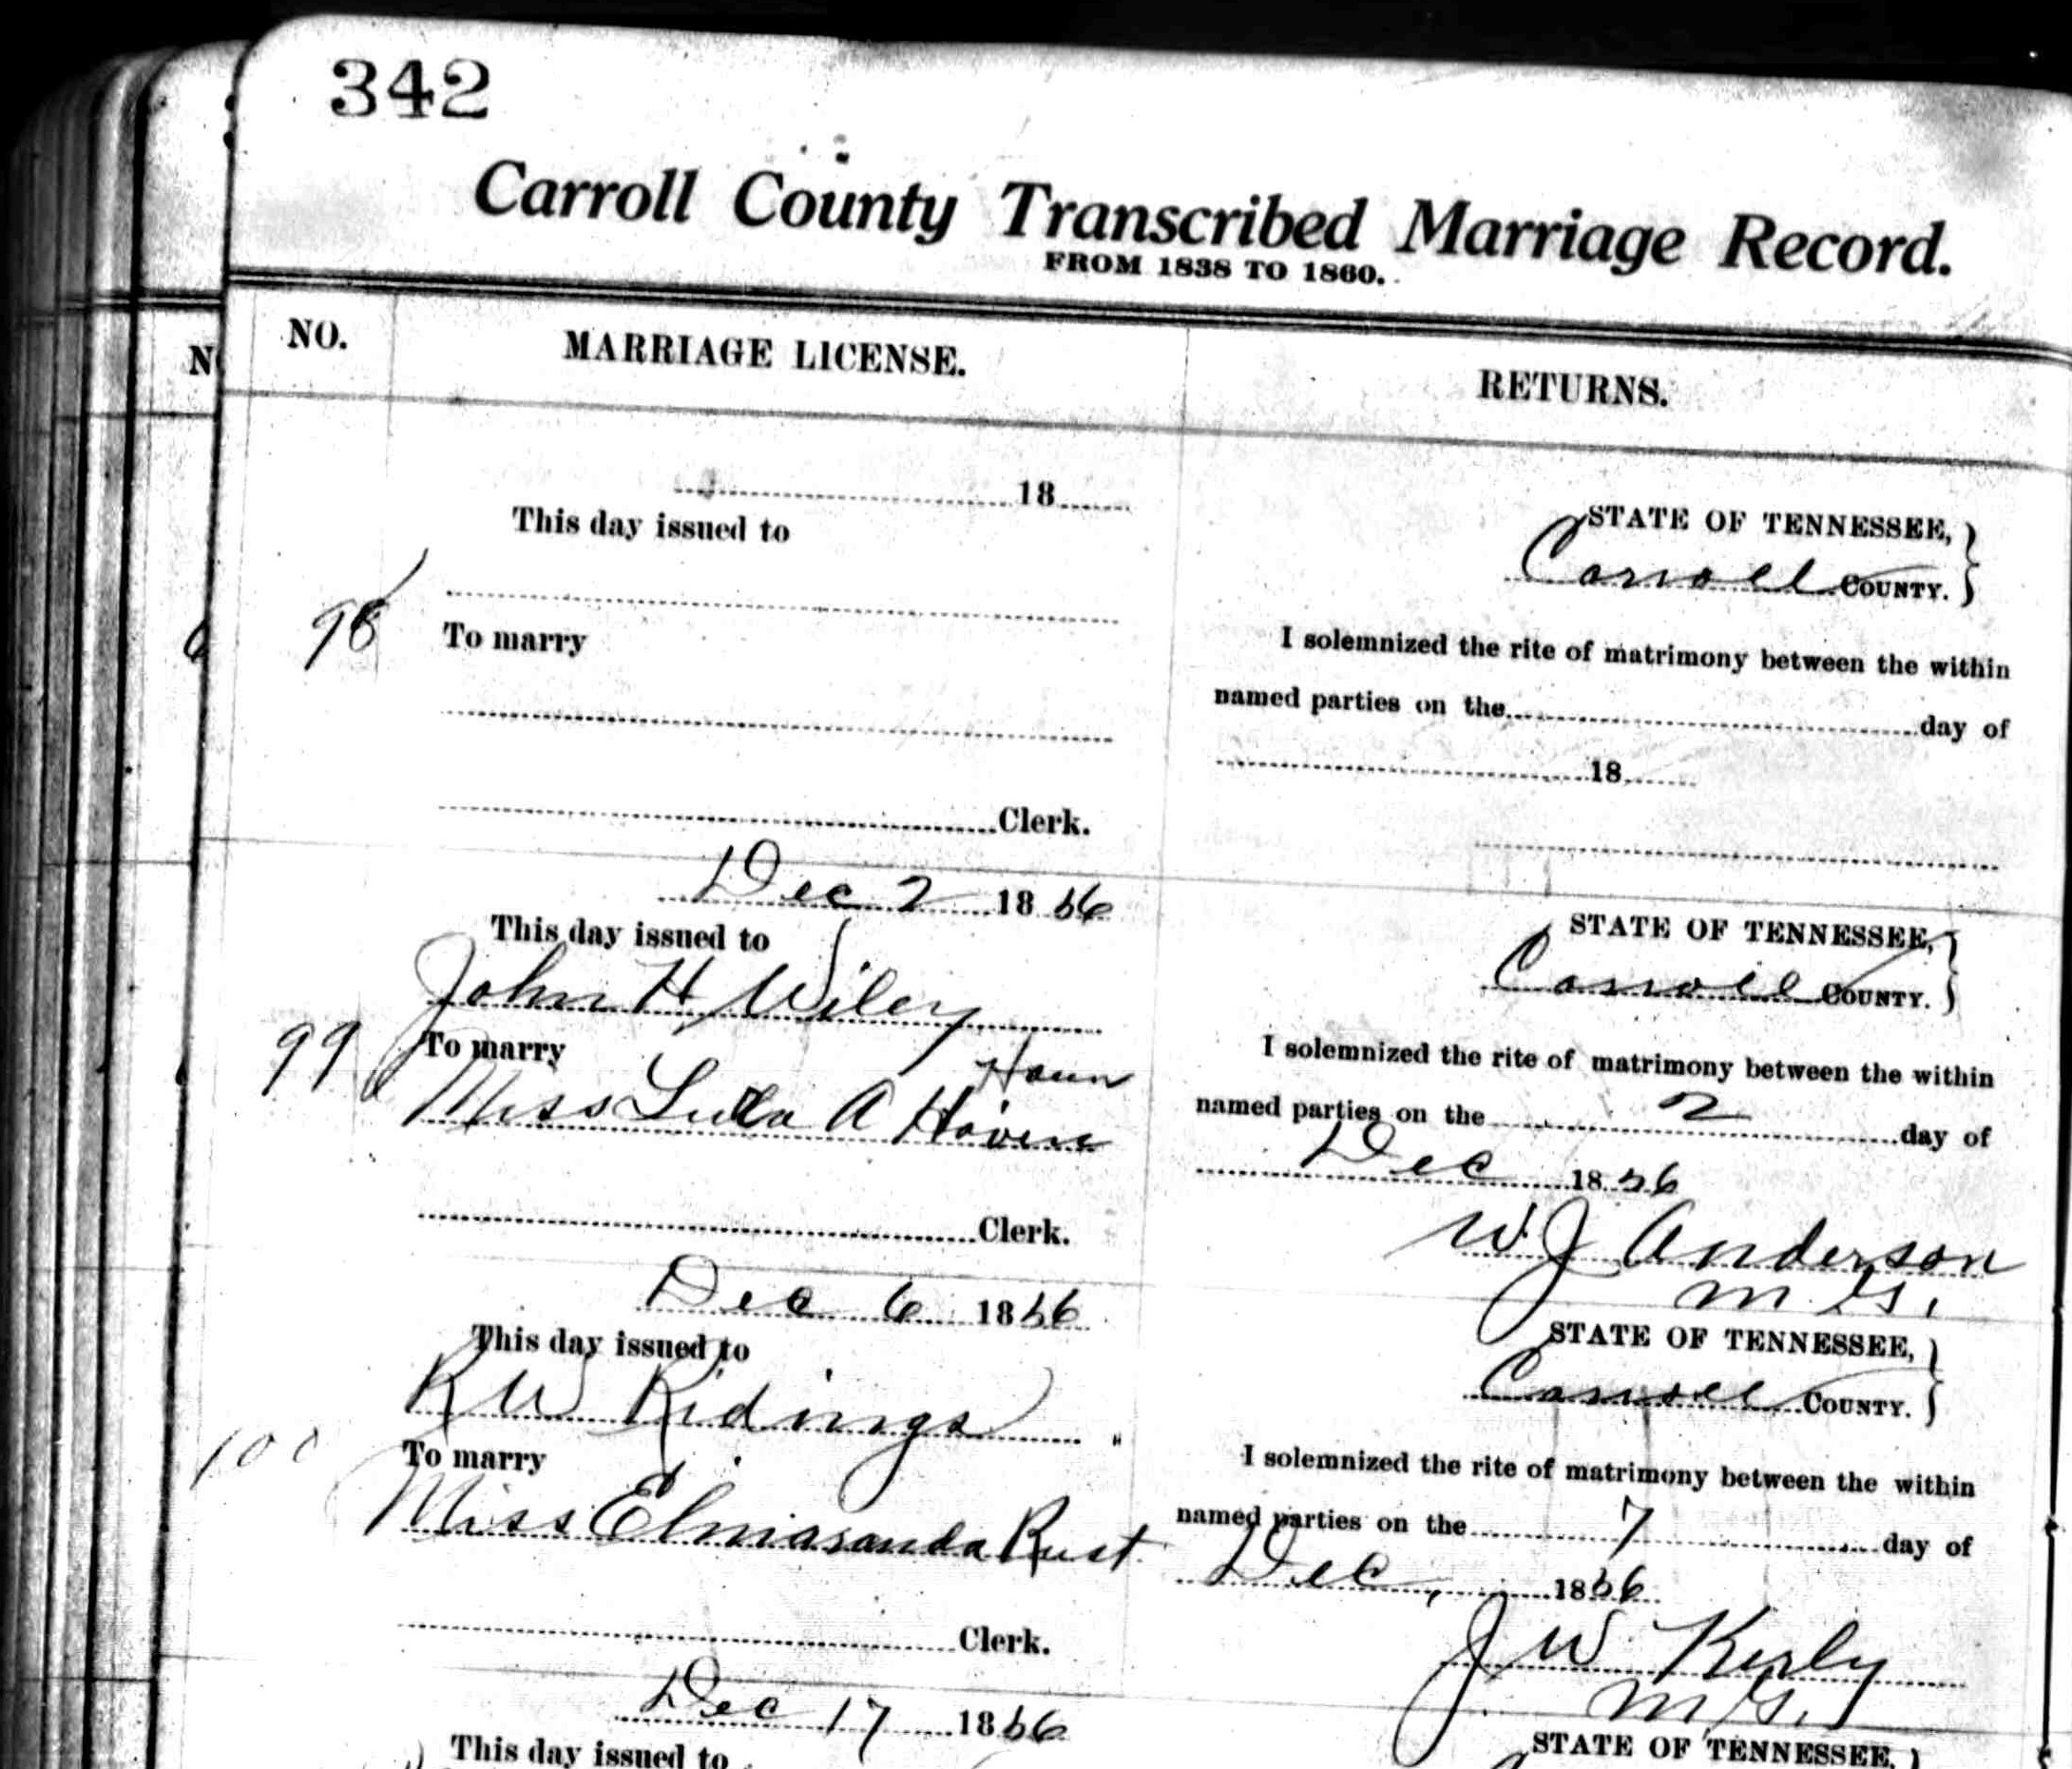 342
Carroll County Transcribed Marriage Record.
FROM 1838 TO 1860.
NO.
MARRIAGE LICENSE.
RETURNS.
18
This day issued to
98
To marry
Clerk.
STATE OF TENNESSEE,
Carroll COUNTY.
I solemnized the rite of matrimony between the within
named parties on the day of
18
Dec 2 1856
This day issued to
John H Wiley
99
To marry
Haun
Miss A Haven
Clerk.
STATE OF TENNESSEE,
Carroll COUNTY.
I solemnized the rite of matrimony between the within
named parties on the 2 day of
Dec 1856
W J Anderson
M. G.
Dec 6 1856
This day issued to
R W Ridings
100
To marry
Miss Elmiaranda Rust
Clerk.
STATE OF TENNESSEE,
Carroll COUNTY.
I solemnized the rite of matrimony between the within
named parties on the 7 day of
Dec, 1856
J W Kerly
M. G.
Dec 17 1856
This day issued to
STATE OF TENNESSEE,